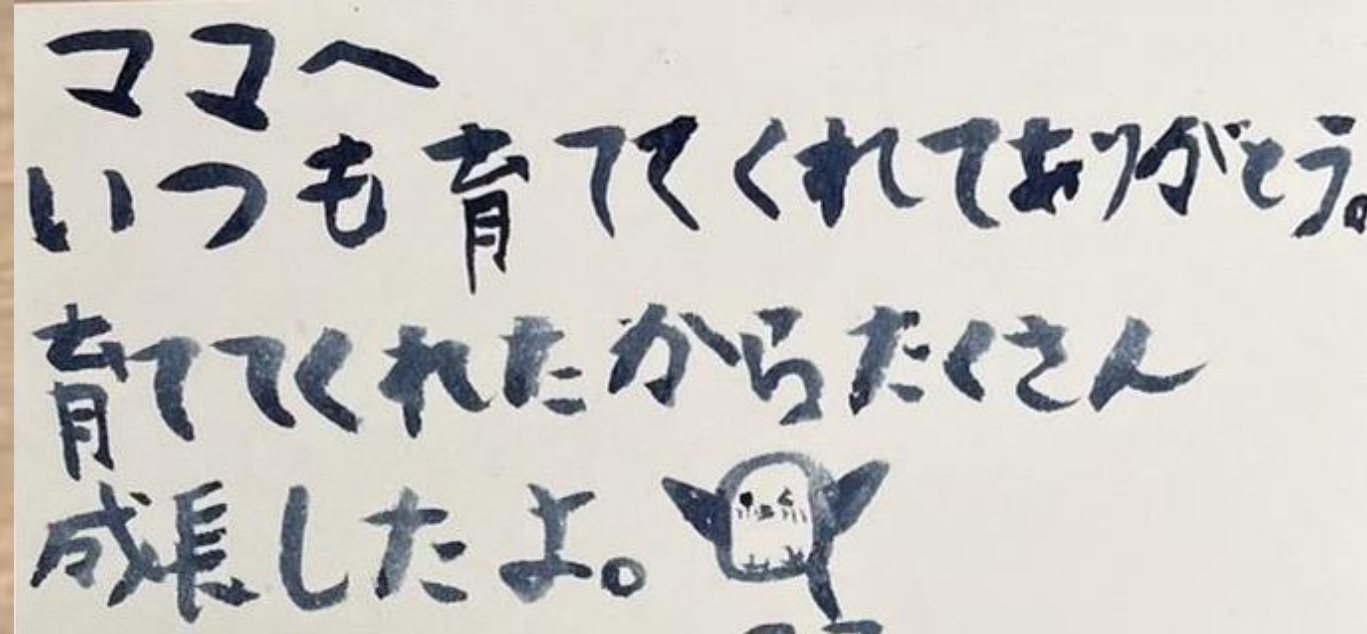 ママへ
いつも育ててくれてありがとう。
育ててくれたからたくさん
成長したよ。